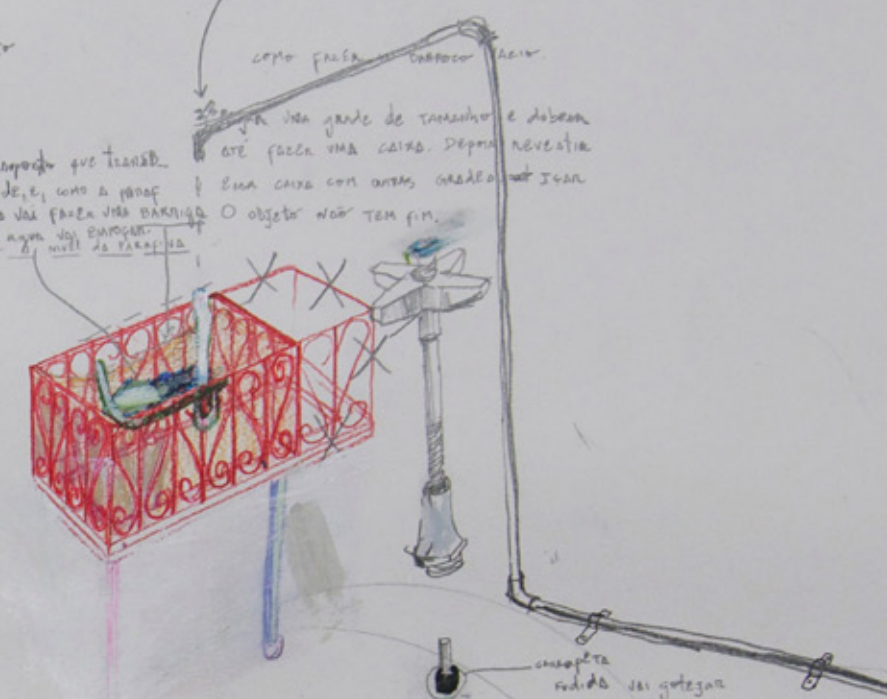 COMO FAZER UM BARROCO
UMA grade de TAMANHO e dobrar
ATÉ FAZER UMA CAIXA. Depois revestir
ESSA CAIXA COM OUTRAS GRADES IÇAR
O objeto NÃO TEM FIM.
que
de, e, COMO A PARAF
VAI FAZER UMA BARRIGA
AGUA VAI EMPOÇAR.
A NIVEL DA PARAFINA
CARRAPETA
fodida VAI gotejar